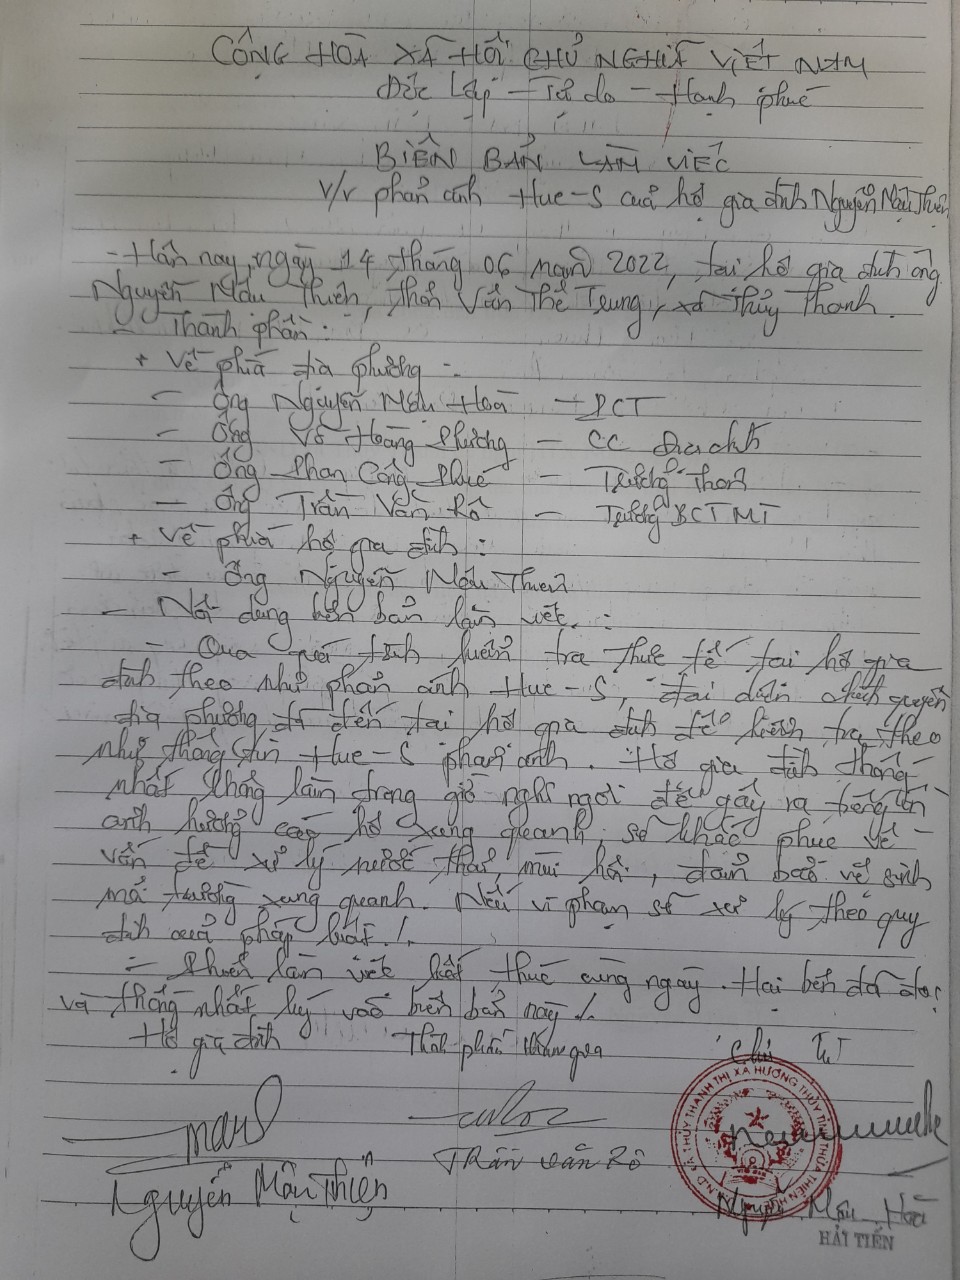 CỘNG HOÀ XÃ HỘI CHỦ NGHĨA VIỆT NAM
Độc lập - Tự do - Hạnh phúc
BIÊN BẢN LÀM VIỆC
V/v phản ánh Hue-S của hộ gia đình Nguyễn Mậu Thiện
- Hôm nay, ngày 14 tháng 06 năm 2022, tại hộ gia đình ông
Nguyễn Mậu Thiện, thôn Vân Thê Trung, xã Thủy Thanh.
- Thành phần:
+ Về phía địa phương:
- Ông Nguyễn Mậu Hoà - PCT
- Ông Võ Hoàng Phương - CC Địa chính
- Ông Phan Công Phúc - Trưởng thôn
- Ông Trần Văn Rô - Trưởng BCTMT
+ Về phía hộ gia đình:
- Ông Nguyễn Mậu Thiện
- Nội dung biên bản làm việc:
- Qua quá trình kiểm tra thực tế tại hộ gia
đình theo như phản ánh Hue-S, đại diện chính quyền
địa phương đã đến tại hộ gia đình để kiểm tra theo
như thông tin Hue-S phản ánh. Hộ gia đình thống
nhất không làm trong giờ nghỉ ngơi để gây ra tiếng ồn
ảnh hưởng các hộ xung quanh, sẽ khắc phục về
vấn đề xử lý nước thải, mùi hôi, đảm bảo vệ sinh
môi trường xung quanh. Nếu vi phạm sẽ xử lý theo quy
định của pháp luật./.
- Phiên làm việc kết thúc cùng ngày. Hai bên đã đọc
và thống nhất ký vào biên bản này./.
Hộ gia đình Thành phần tham gia Chủ trì
Trần Văn Rô
Nguyễn Mậu Thiện
Nguyễn Mậu Hoà
U.B.N.D XÃ THỦY THANH THỊ XÃ HƯƠNG THỦY TỈNH THỪA THIÊN HUẾ
HẢI TIẾN